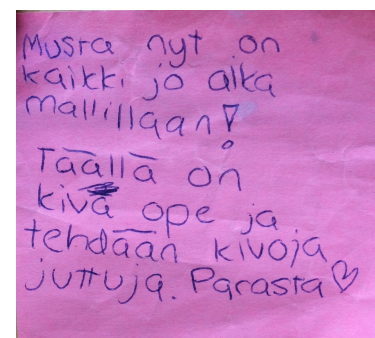 Musta nyt on
kaikki jo aika
mallillaan!
Täällä on
kivä ope ja
tehdään kivoja
juttuja. Parasta ♡